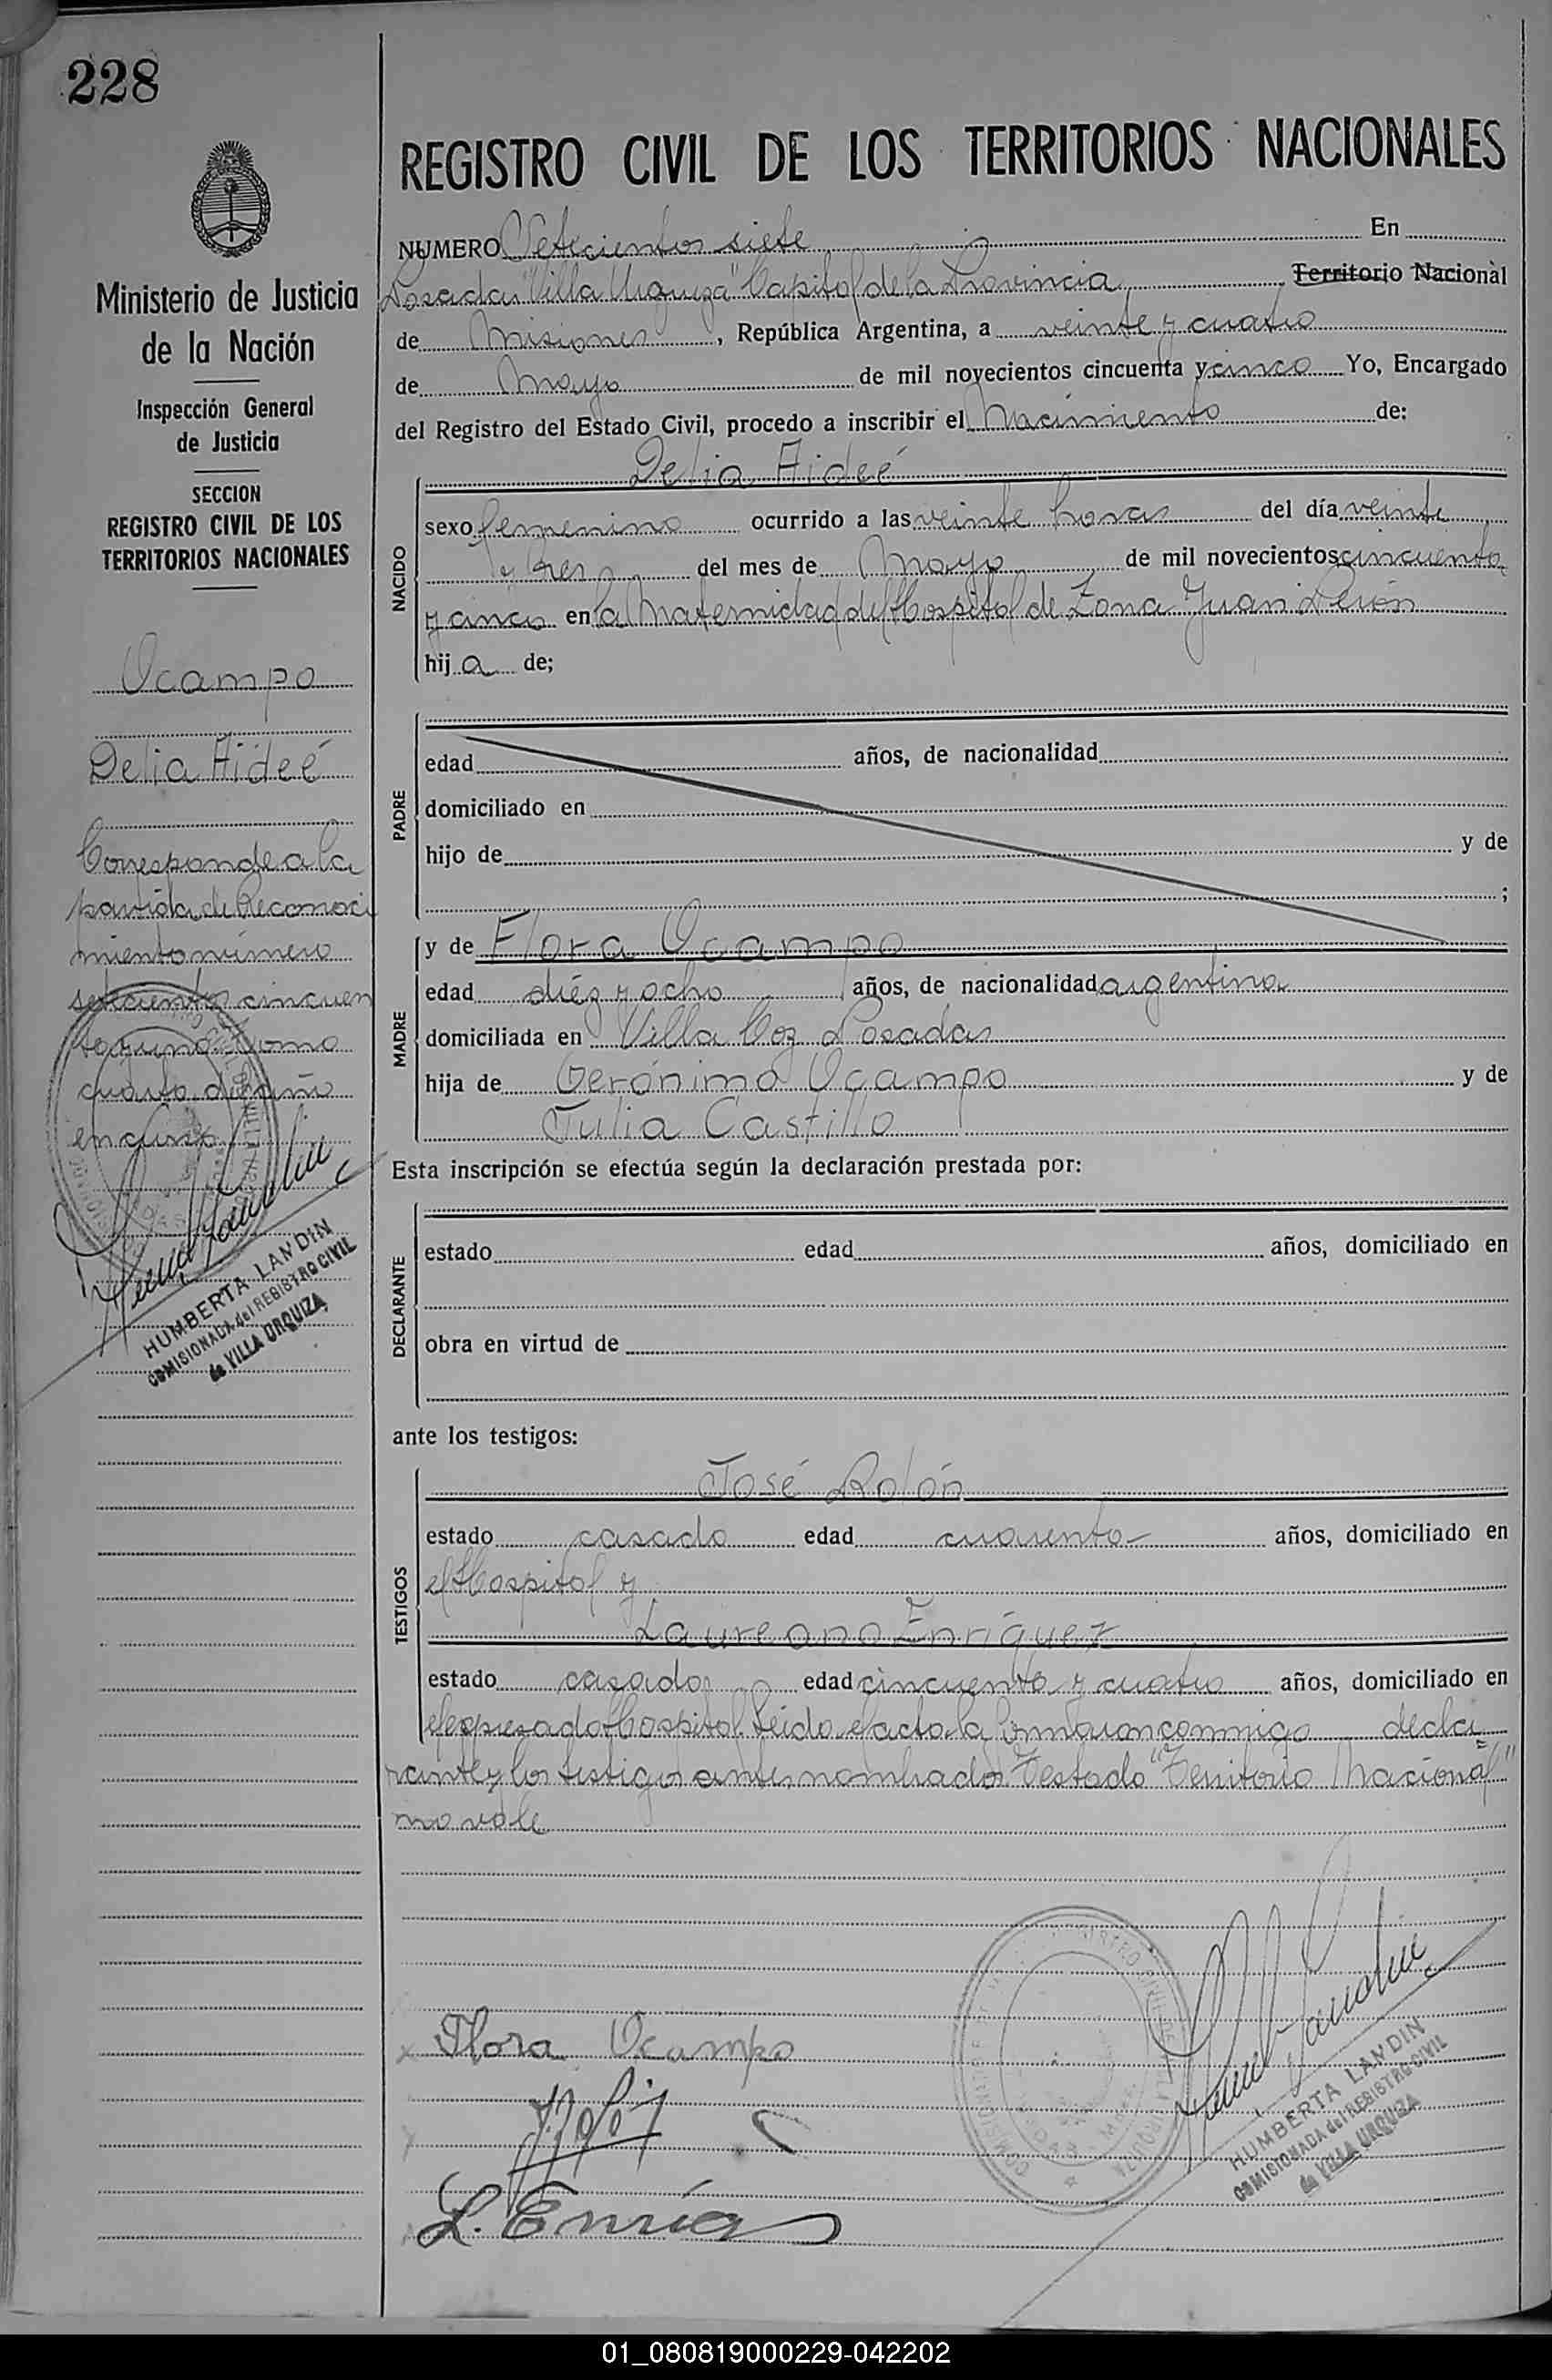 228
REGISTRO CIVIL DE LOS TERRITORIOS NACIONALES
Ministerio de Justicia
de la Nación
Inspección General
de Justicia
SECCION
REGISTRO CIVIL DE LOS
TERRITORIOS NACIONALES
Ocampo
Delia Aideé
Corresponde a la
partida de Reconoci
miento número
setecientos cincuen
ta y uno tomo
cuarto del año
en curso
HUMBERTA LANDIN
COMISIONADA del REGISTRO CIVIL
de VILLA URQUIZA
NUMERO Setecientos siete En
Posadas "Villa Urquiza" Capital de la Provincia Territorio Nacional
de Misiones, República Argentina, a veinte y cuatro
de Mayo de mil novecientos cincuenta y cinco Yo, Encargado
del Registro del Estado Civil, procedo a inscribir el Nacimiento de:
Delia Aideé
NACIDO
sexo femenino ocurrido a las veinte horas del día veinte
y tres del mes de Mayo de mil novecientos cincuenta
y cinco en la Maternidad del Hospital de Zona Juan Perón
hija de;
PADRE
edad años, de nacionalidad
domiciliado en
hijo de y de
;
MADRE
y de Flora Ocampo
edad diéz y ocho años, de nacionalidad argentina
domiciliada en Villa Coz Posadas
hija de Gerónimo Ocampo y de
Julia Castillo
Esta inscripción se efectúa según la declaración prestada por:
DECLARANTE
estado edad años, domiciliado en
obra en virtud de
ante los testigos:
TESTIGOS
José Rolón
estado casado edad cuarenta años, domiciliado en
el Hospital y
Laureano Enríquez
estado casado edad cincuenta y cuatro años, domiciliado en
el expresado Hospital. Leído el acta la firmaron conmigo decla
rante y los testigos antes nombrados Testado "Territorio Nacional"
no vale
Flora Ocampo
L. Enríq
HUMBERTA LANDIN
COMISIONADA del REGISTRO CIVIL
de VILLA URQUIZA
01_080819000229-042202